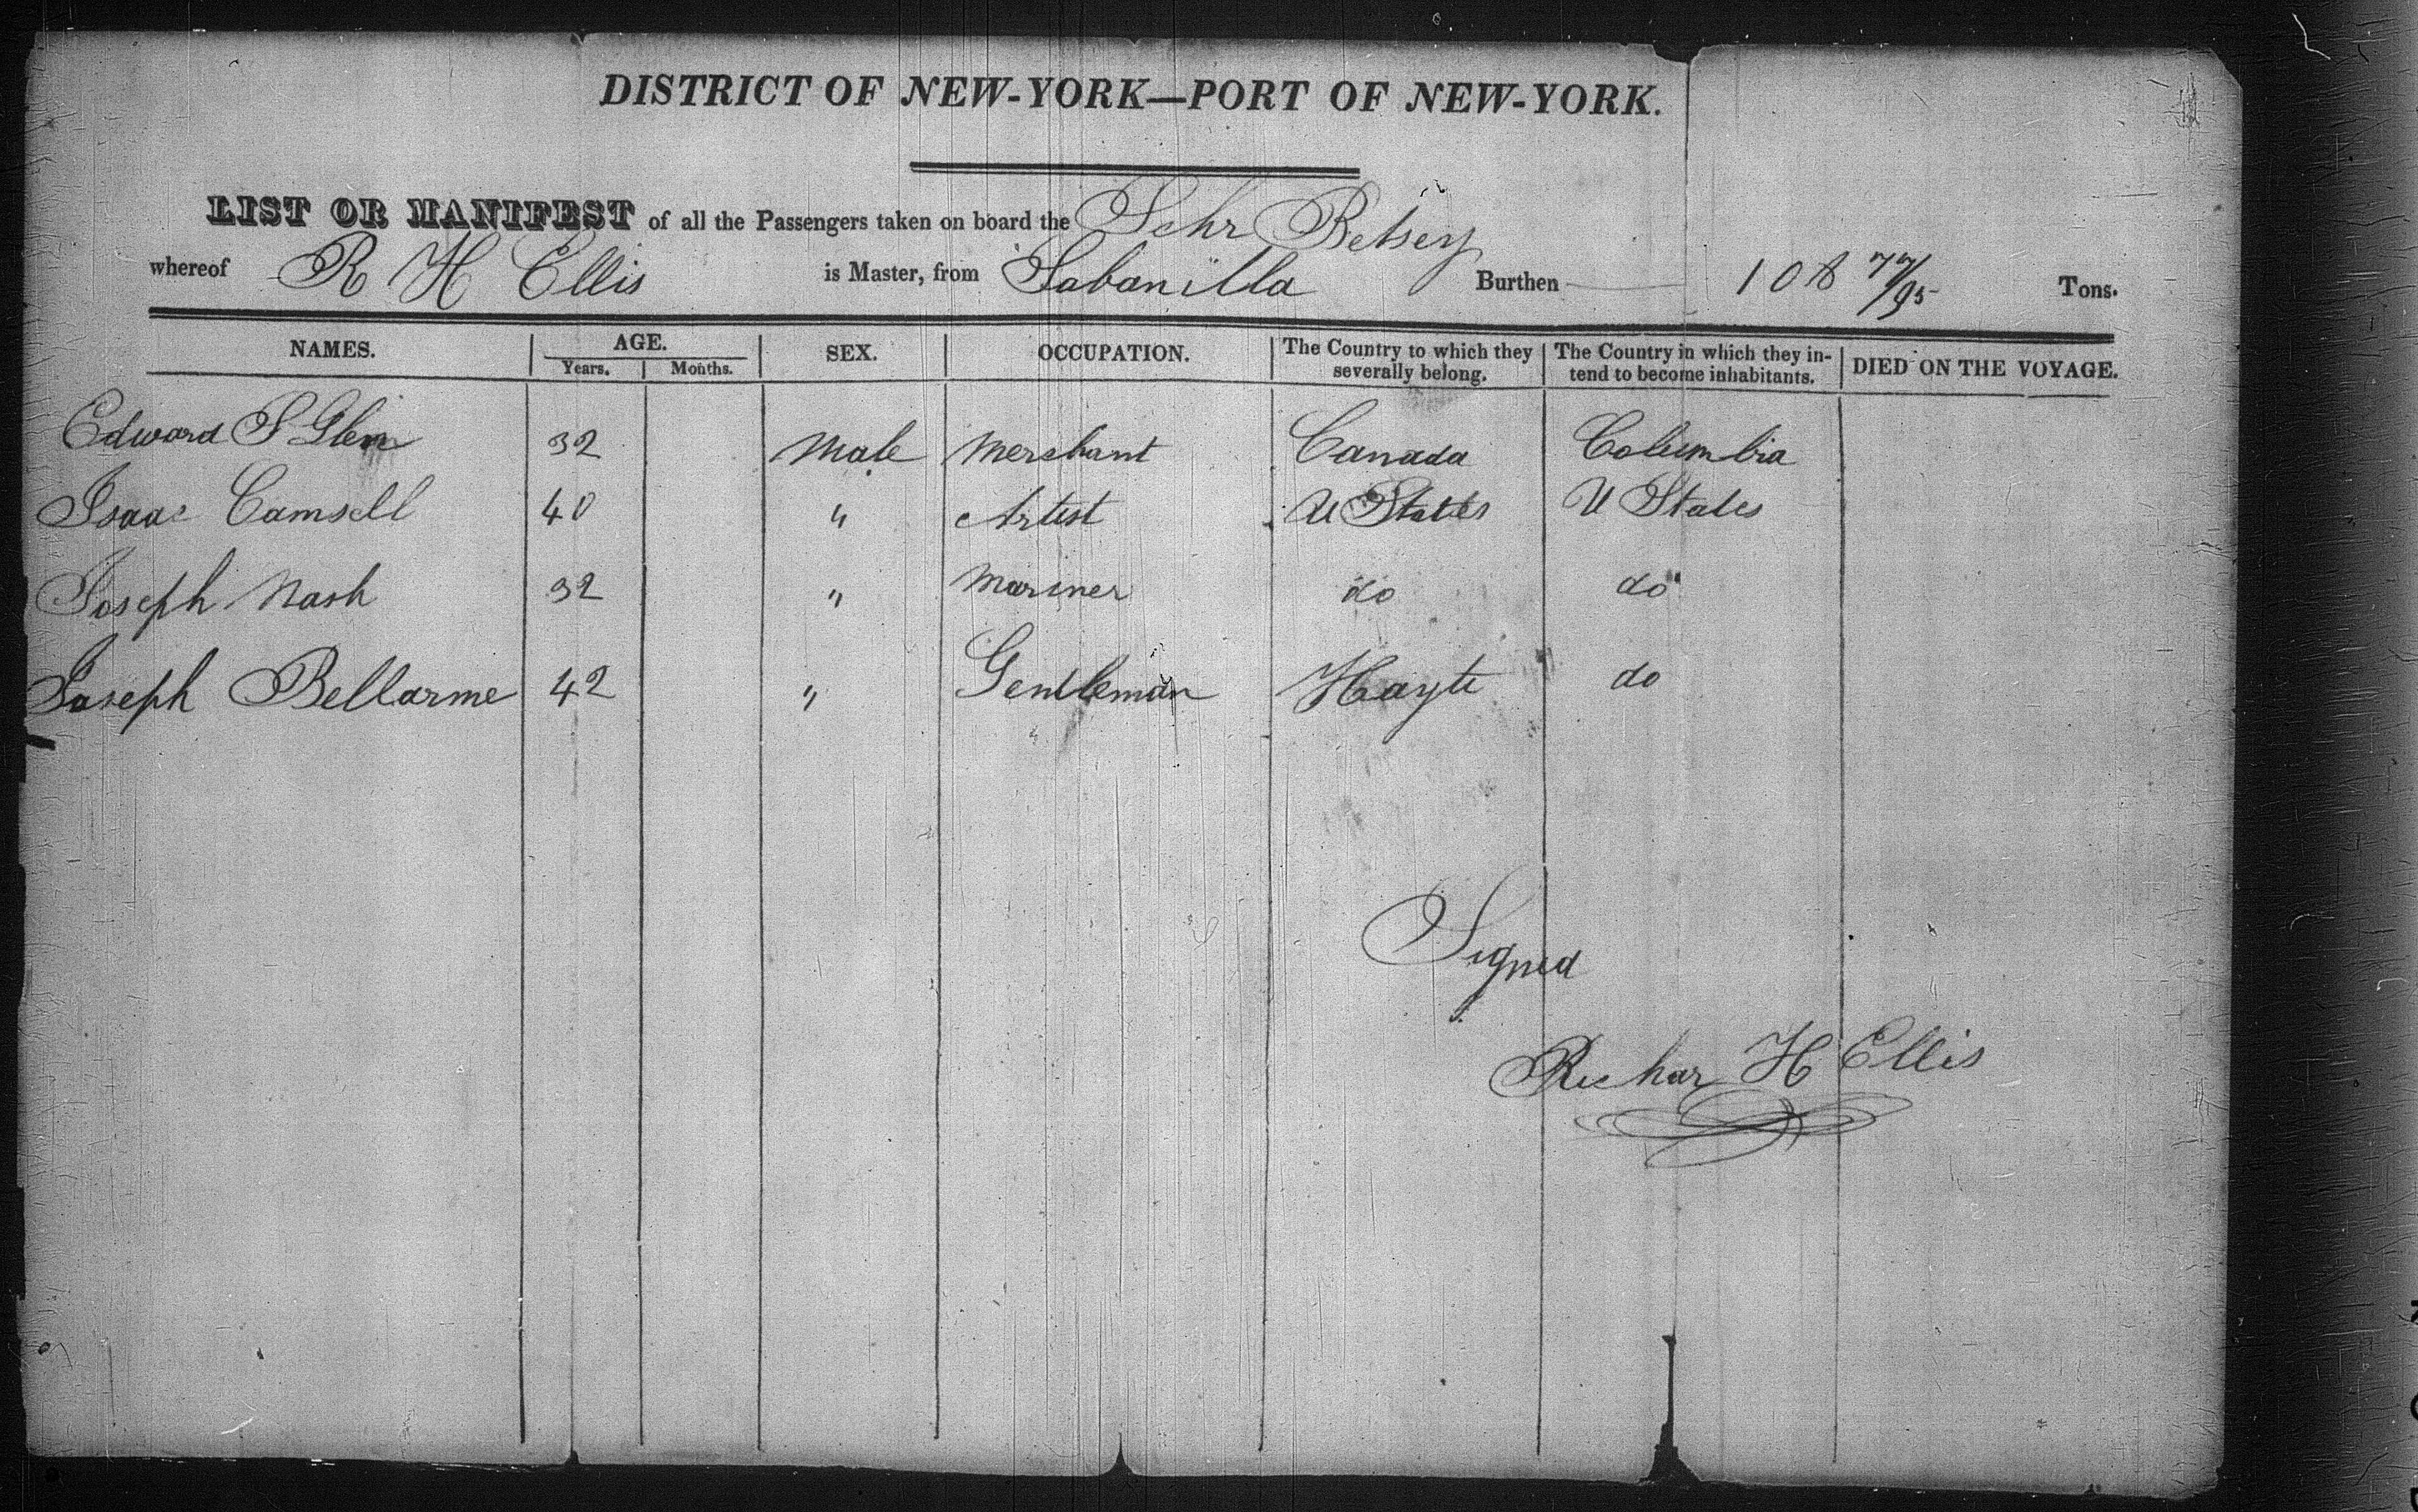 DISTRICT OF NEW-YORK—PORT OF NEW-YORK.
LIST OR MANIFEST of all the Passengers taken on board the Schr Betsey
whereof R H Ellis is Master, from Sabanilla Burthen 108 77/95 Tons.
NAMES. AGE. Years. Months. SEX. OCCUPATION. The Country to which they severally belong. The Country in which they intend to become inhabitants. DIED ON THE VOYAGE.
Edward S Glen 32 Male Merchant Canada Columbia
Isaac Camsell 40 " Artist U States U States
Joseph Nash 32 " Mariner do do
Joseph Bellarme 42 " Gentleman Hayti do
Signed
Richar H Ellis